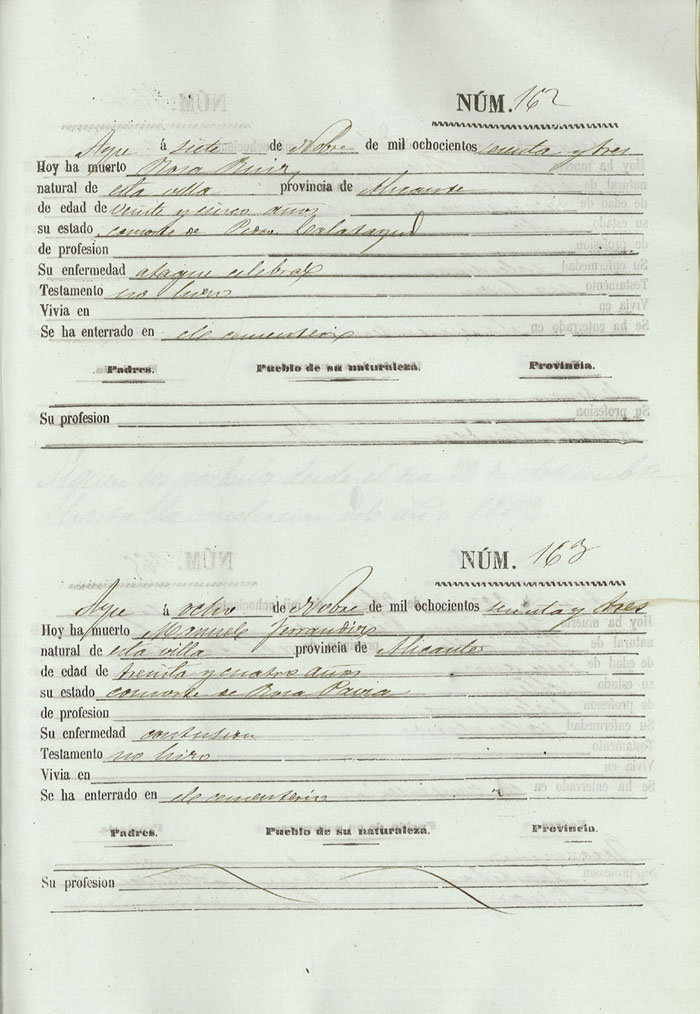 NÚM. 162
á siete de Nobre de mil ochocientos
Hoy ha muerto Rosa Ruiz
natural de esta villa provincia de Alicante
de edad de veinte y cinco años
su estado consorte de Calatayud
de profesion
Su enfermedad ataque celebral
Testamento no hizo
Vivia en
Se ha enterrado en el cementerio
Padres. Pueblo de su naturaleza. Provincia.
Su profesion
NÚM. 163
á ocho de Nobre de mil ochocientos sesenta y tres
Hoy ha muerto Manuel Ferrandiz
natural de esta villa provincia de Alicante
de edad de treinta y cuatro años
su estado consorte de Rosa
de profesion
Su enfermedad contusion
Testamento no hizo
Vivia en
Se ha enterrado en el cementerio
Padres. Pueblo de su naturaleza. Provincia.
Su profesion